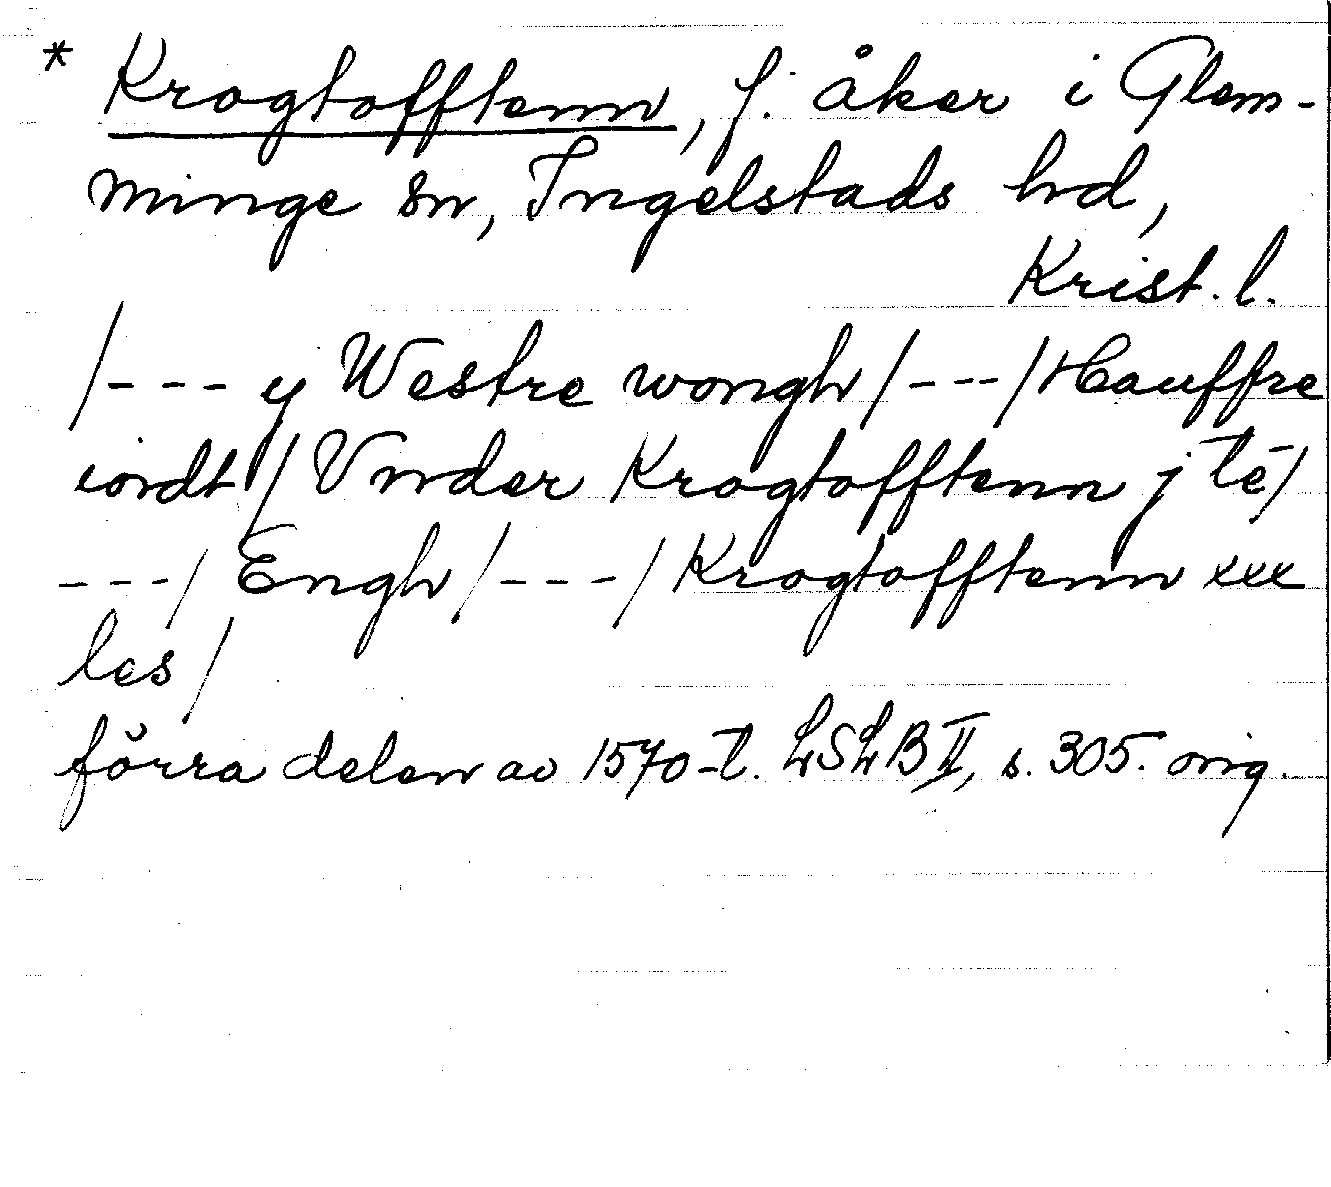 * Krogtofftenn, f. åker i Glem-
minge sn, Ingelstads hd,
Krist. l.
/--- y Westre wongh/---/Hauffre
iordt/Vnder Krogtofftenn j té/
---/Engh/---/Krogtofftenn xxx
les/
förra delen av 1570-t. LSLB II, s. 305. orig.